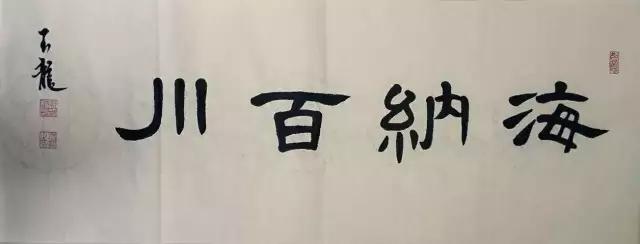 海納百川
玉龍